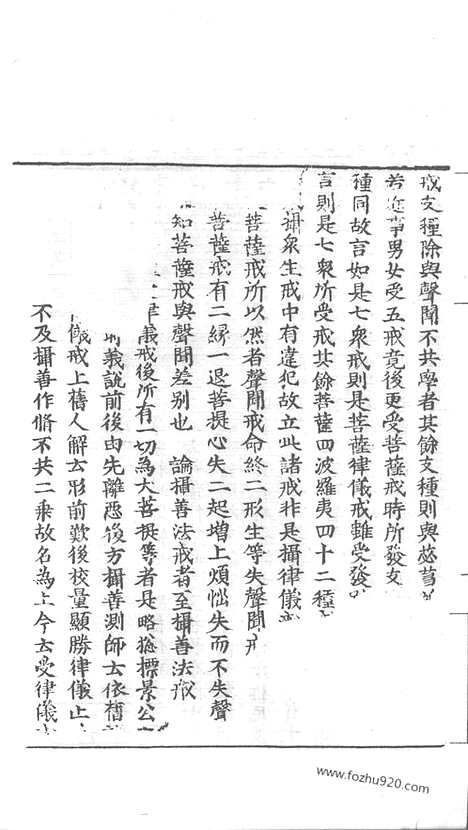 戒支種除與聲聞不共學者其餘支種則與苾芻
若近事男女受五戒竟後更受菩薩戒時所發支
種同故言如是七衆戒則是菩薩律儀戒雖受發
言則是七衆所受戒其餘菩薩四波羅夷四十二種
攝衆生戒中有違犯故立此諸戒非是攝律儀
菩薩戒所以然者聲聞戒命終二形生等失聲聞戒
菩薩戒有二緣一退菩提心失二起增上煩惱失而不失聲
知菩薩戒與聲聞差別也 論攝善法戒者至攝善法戒
律儀戒後所有一切為大菩提等者是略惣標景公
義說前後由先離惡後方攝善測師云依舊
儀戒上舊人解云形前歎後校量顯勝律儀止
不及攝善作脩不共二乘故名為上今云受律儀
www.fozhu920.com